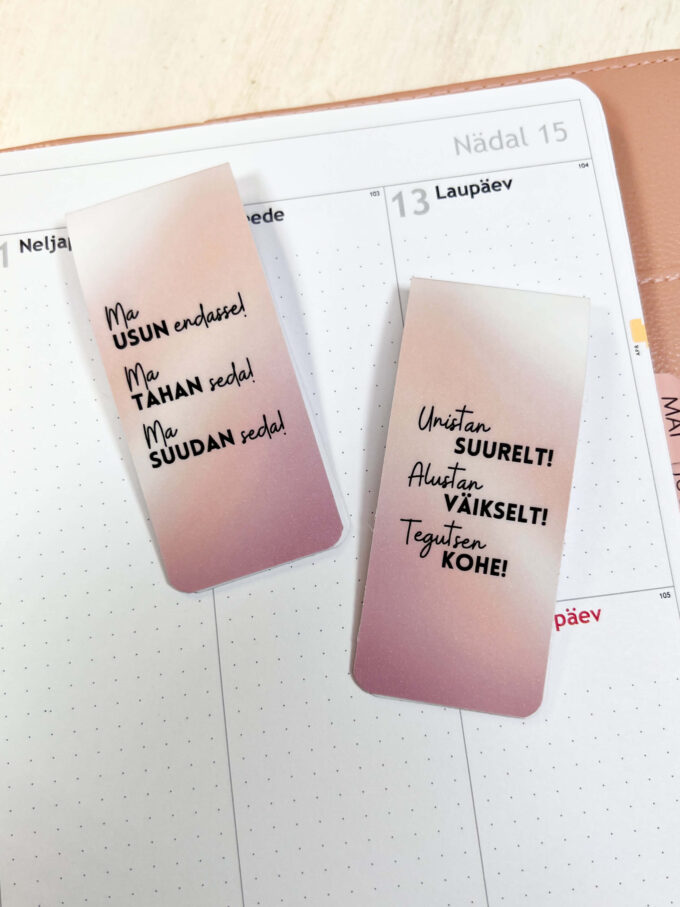 Nädal 15
103
104
1 Nelja
ede
13 Laupäev
Ma
USUN endasse!
Ma
TAHAN seda!
Ma
SUUDAN seda!
Unistan
SUURELT!
Alustan
VÄIKSELT!
Tegutsen
KOHE!
APR
MAI
105
päev